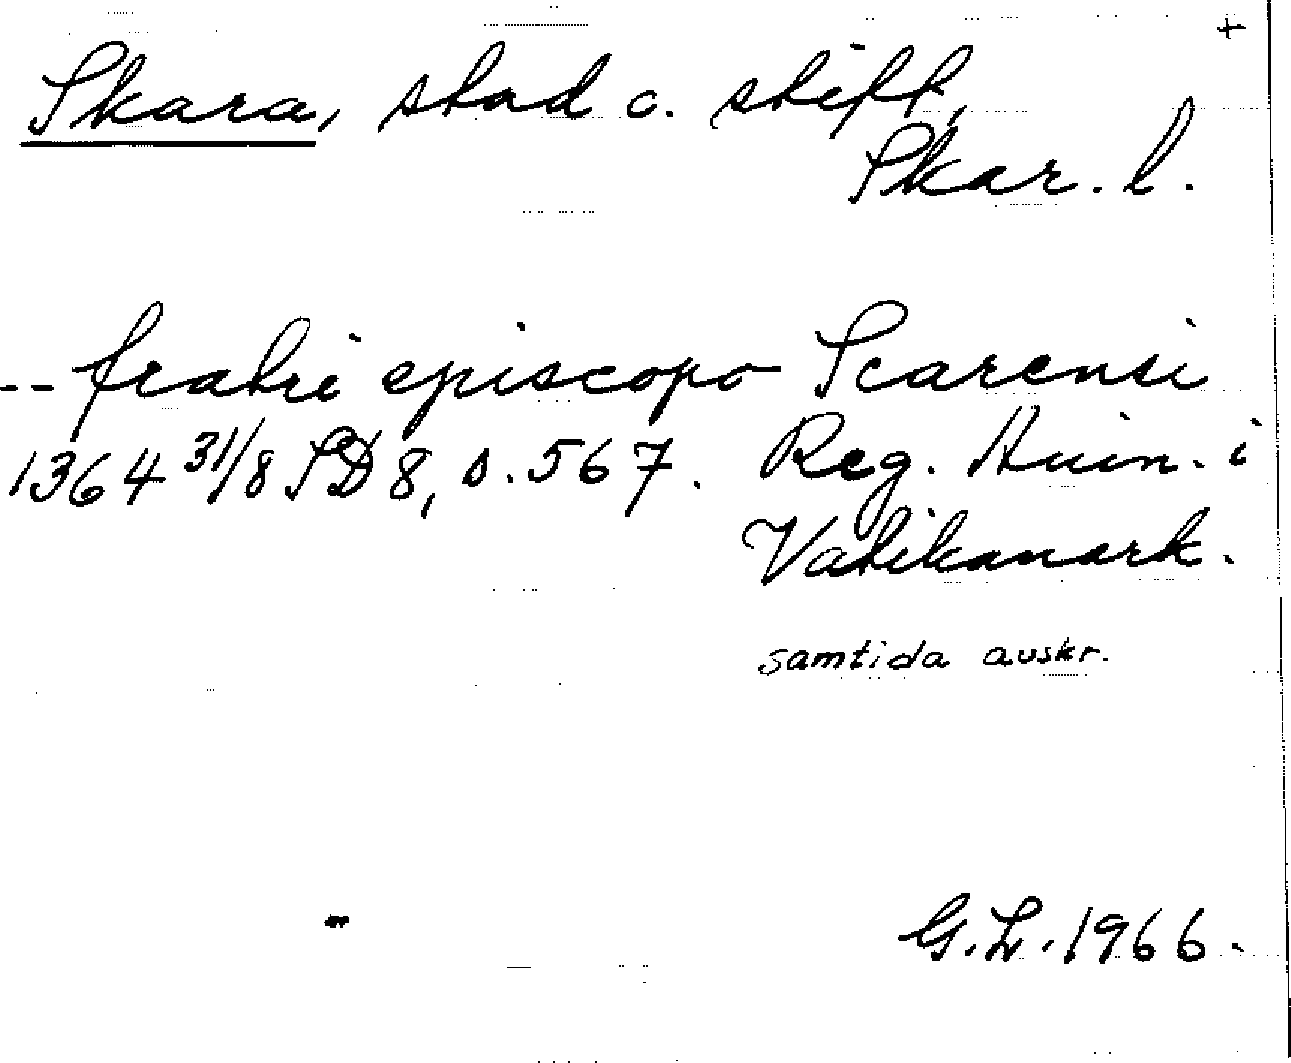 +
Skara, stad o. stift,
Skar. l.
-- fratri episcopo Scarensi
1364 31/8 SD 8, s. 567. Reg. Avin. i
Vatikanark.
samtida avskr.
G.L. 1966.